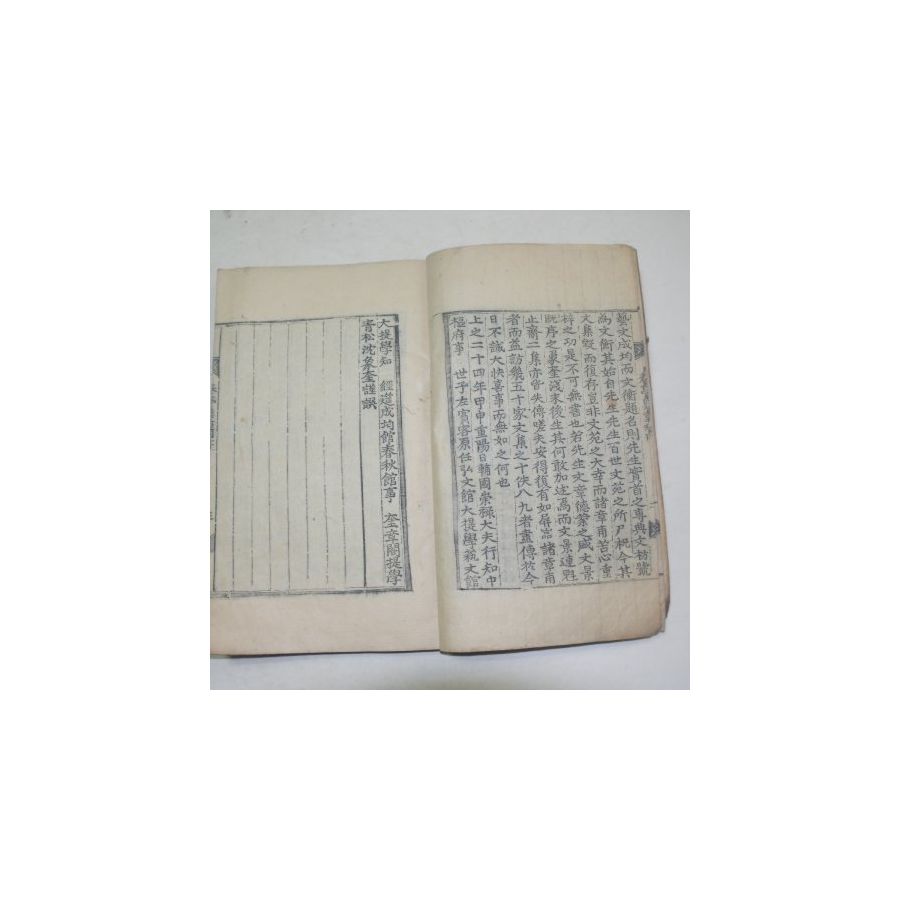 藝文成均而文衡題名則先生實首之專典文枋號
為文衡其始自先生先生百世文苑之所尸柷今其
文集毁而復存豈非文苑之大幸而諸章甫苦心重
梓之功是不可無書也若先生文章德業之盛文景
旣序之象奎淺末後生其何敢加述焉而文景連魁
止齋二集亦皆失傳嗟夫安得復有如屏嵓諸章甫
者而益訪幾五十家文集之十佚八九者盡傳於今
日不誠大快喜事而無如之何也
上之二十四年甲申重陽日輔國崇祿大夫行知中
樞府事 世子左賓客原任弘文館大提學藝文館
大提學知 經筵成均館春秋館事 奎章閣提學
青松沈象奎謹譔